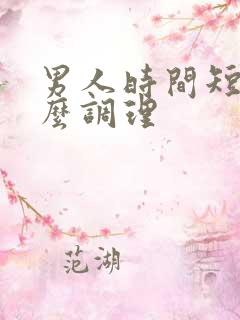 男人時間短
麼調理
范湖